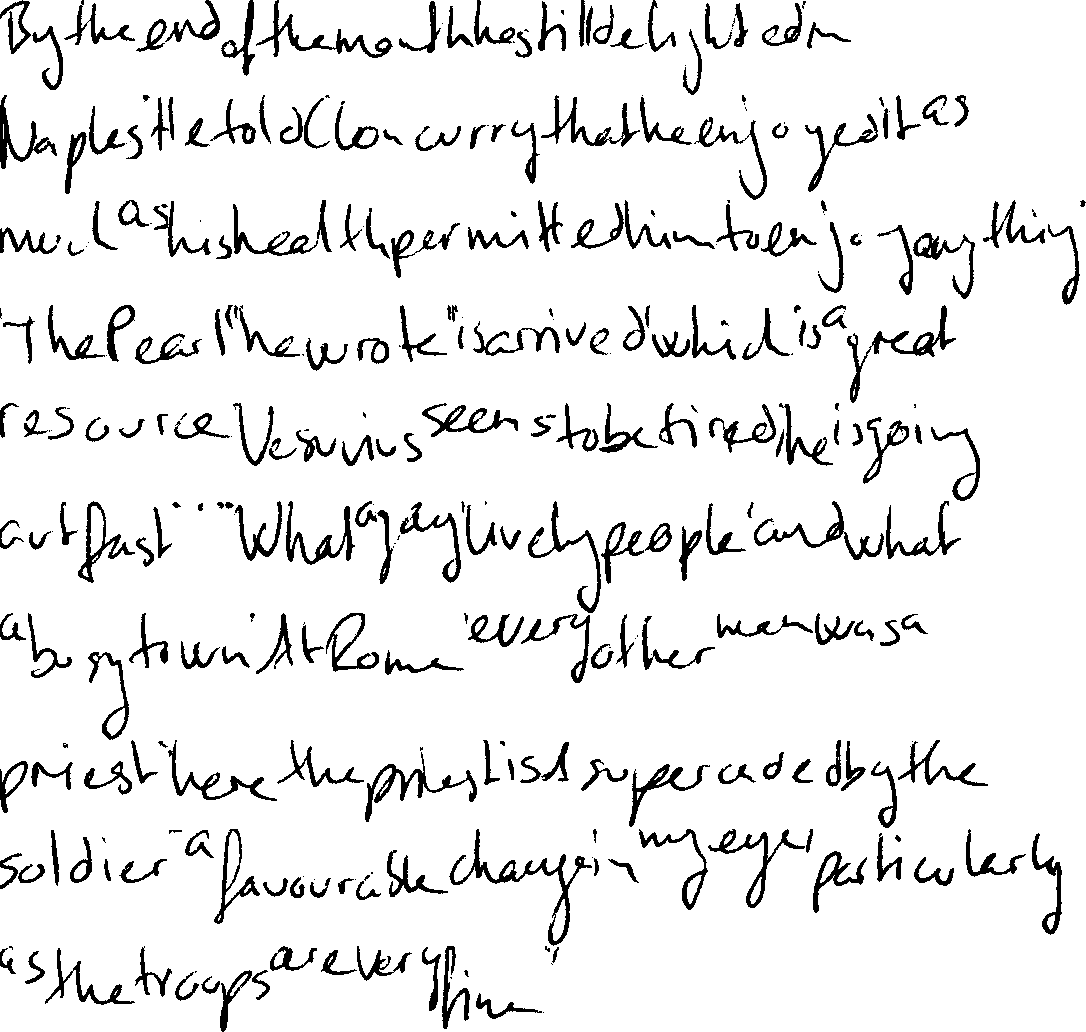 By the end of the month he still delighted in
Naples. He told Cloncurry that he enjoyed it as
much as his health permitted him to enjoy anything.
"The Pearl" he wrote "is arrived, which is a great
resource. Vesuvius seems to be tired, he is going
out fast ...." What a gay, lively people, and what
a busy town. At Rome, every other man was a
priest, here the priest is superceded by the
soldier - a favourable change in my eyes, particularly
as the troops are very fine."